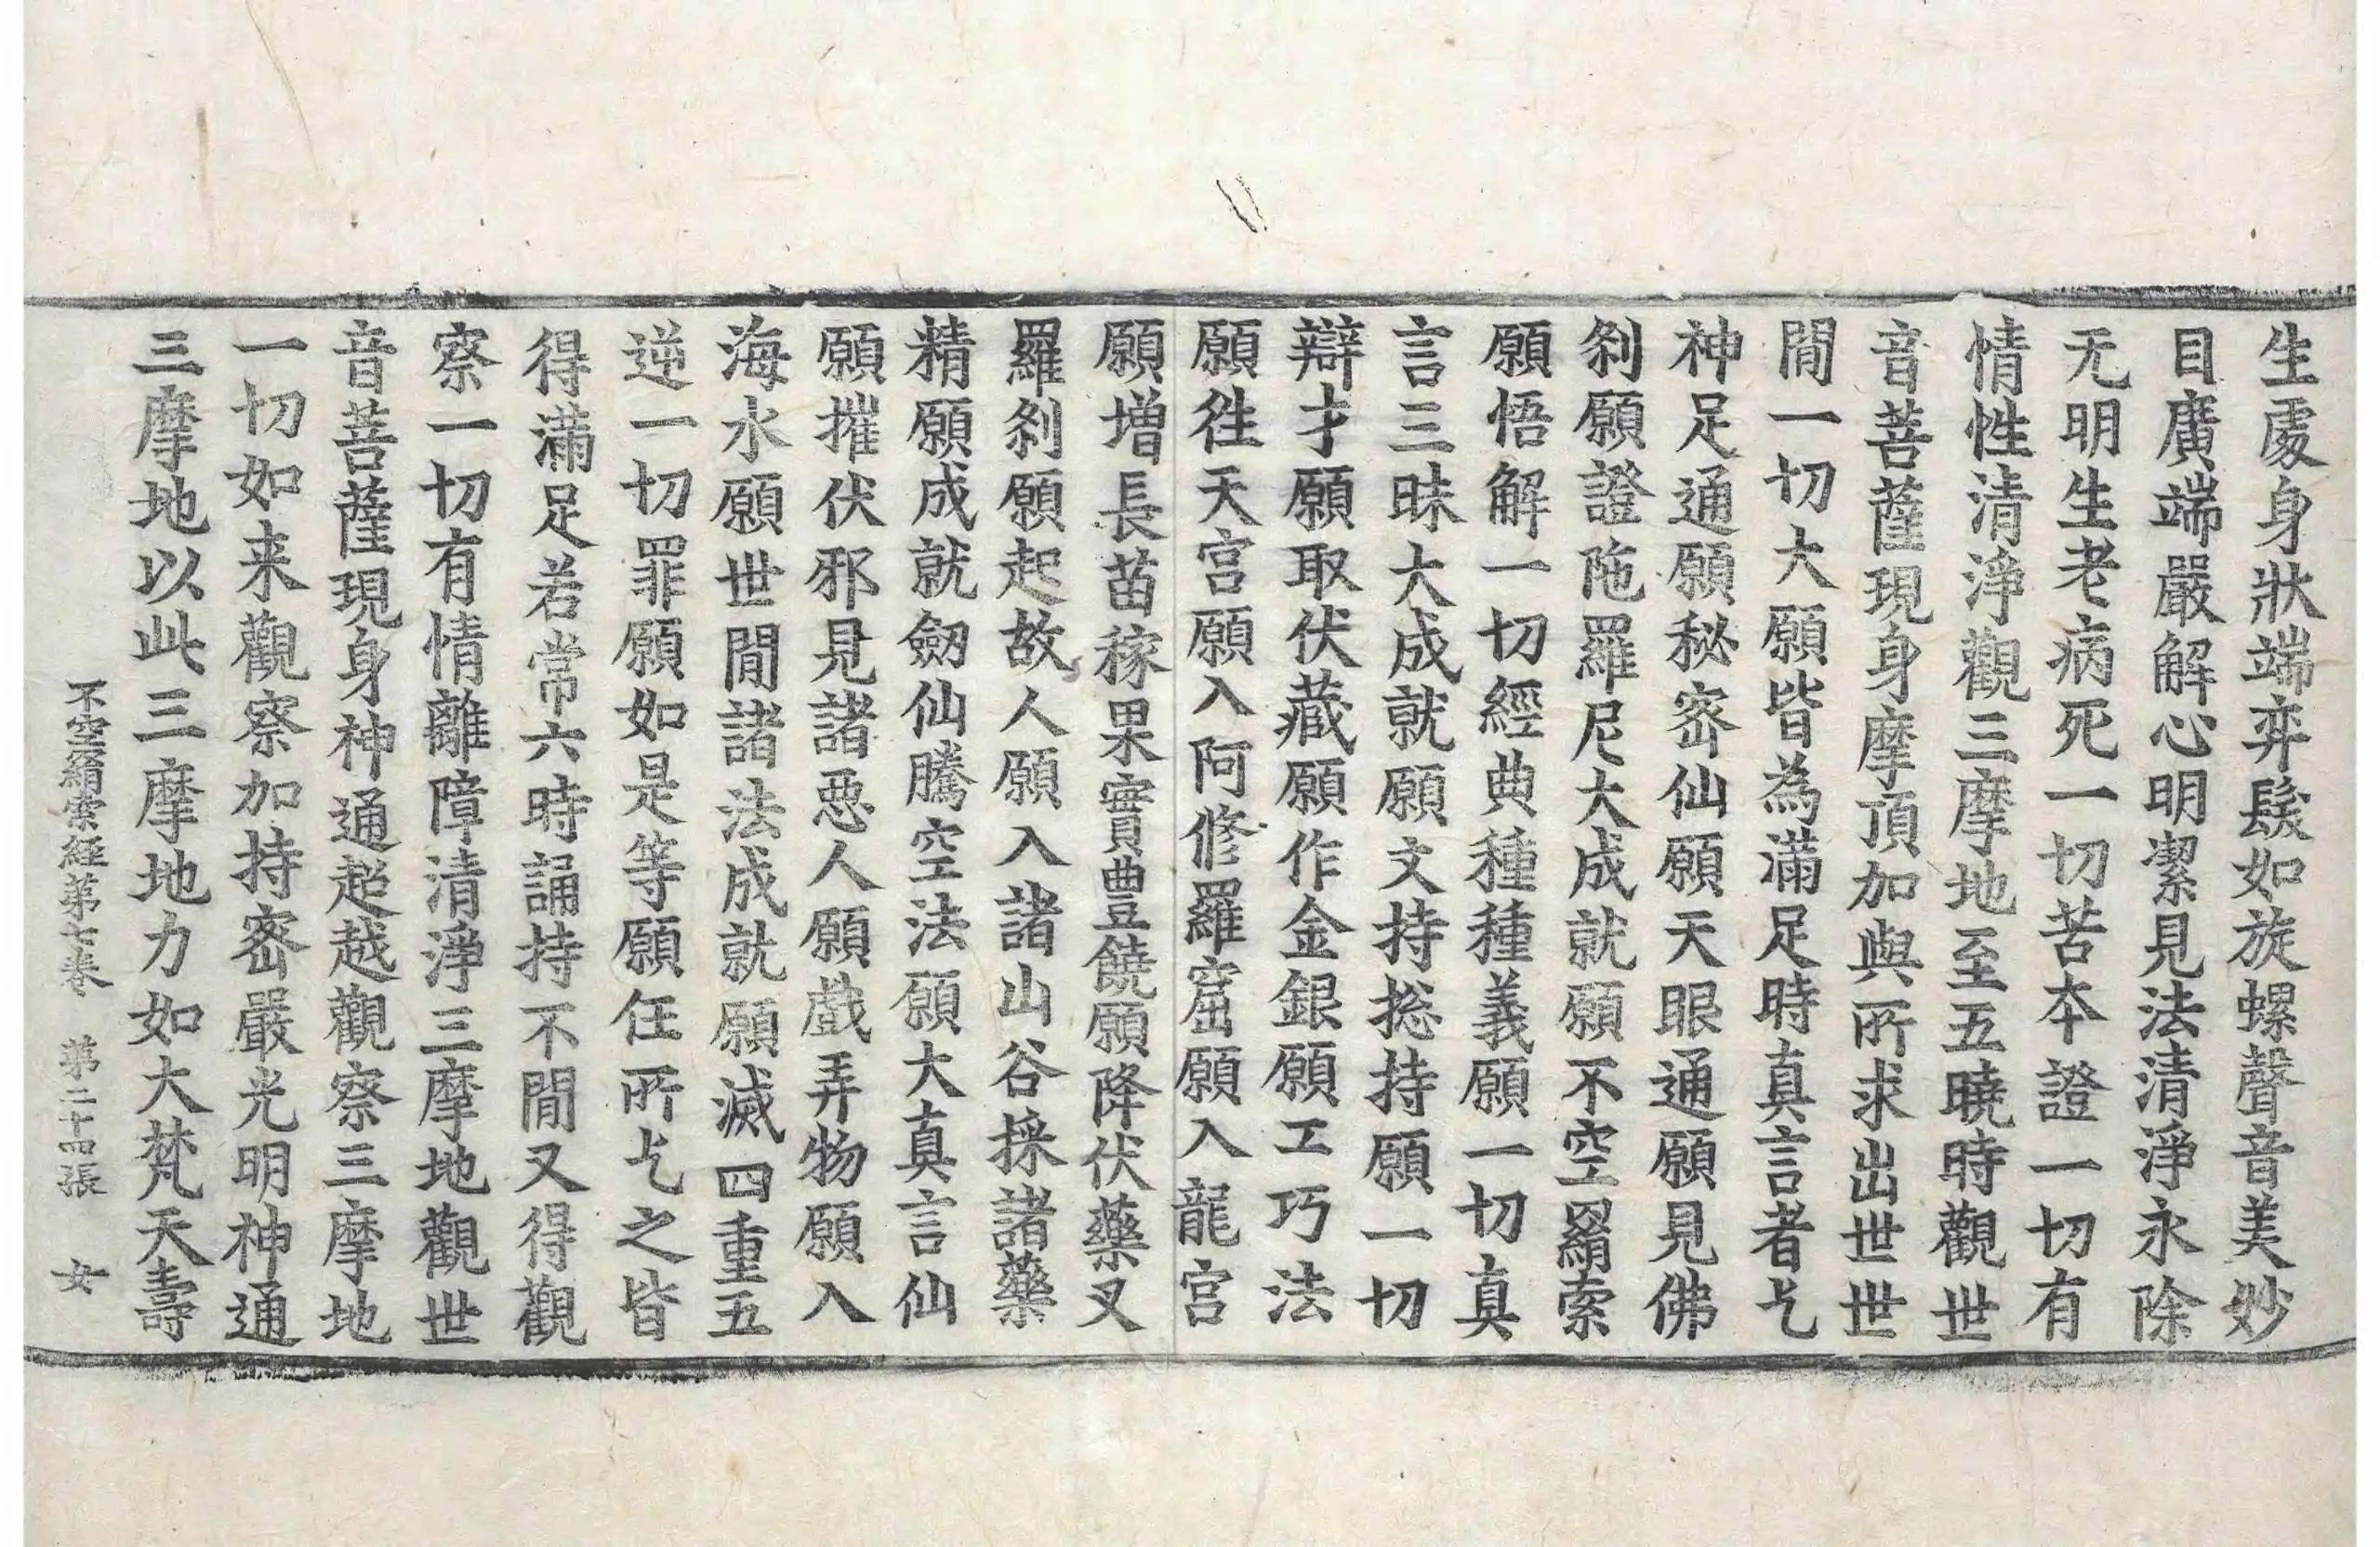 生處身狀端弈鬘如旋螺聲音美妙
目廣端嚴解心明潔見法清淨永除
无明生老病死一切苦本證一切有
情性清淨觀三摩地至五曉時觀世
音菩薩現身摩頂加與所求出世世
間一切大願皆為滿足時真言者乞
神足通願秘密仙願天眼通願見佛
刹願證陁羅尼大成就願不空羂索
願悟解一切經典種種義願一切真
言三昧大成就願文持捴持願一切
辯才願取伏藏願作金銀願工巧法
願往天宮願入阿修羅窟願入龍宮
願增長苗稼果實豊饒願降伏藥叉
羅刹願起故人願入諸山谷採諸藥
精願成就劒仙騰空法願大真言仙
願摧伏邪見諸惡人願戲弄物願入
海水願世間諸法成就願滅四重五
逆一切罪願如是等願任所乞之皆
得滿足若常六時誦持不間又得觀
察一切有情離障清淨三摩地觀世
音菩薩現身神通超越觀察三摩地
一切如来觀察加持密嚴光明神通
三摩地以此三摩地力如大梵天壽
不空羂索經第七卷 第二十四張 女